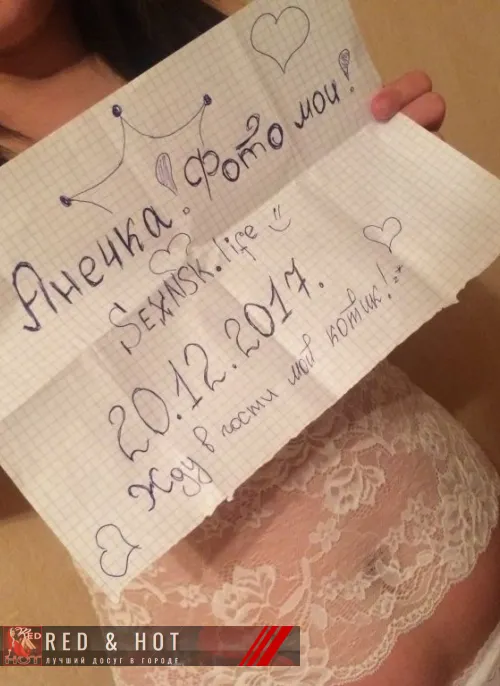 Анечка. Фото мои!
SEXNSK.life
20.12.2017.
Жду в гости мой котик!
RED & HOT
ЛУЧШИЙ ДОСУГ В ГОРОДЕ
RED
HOT